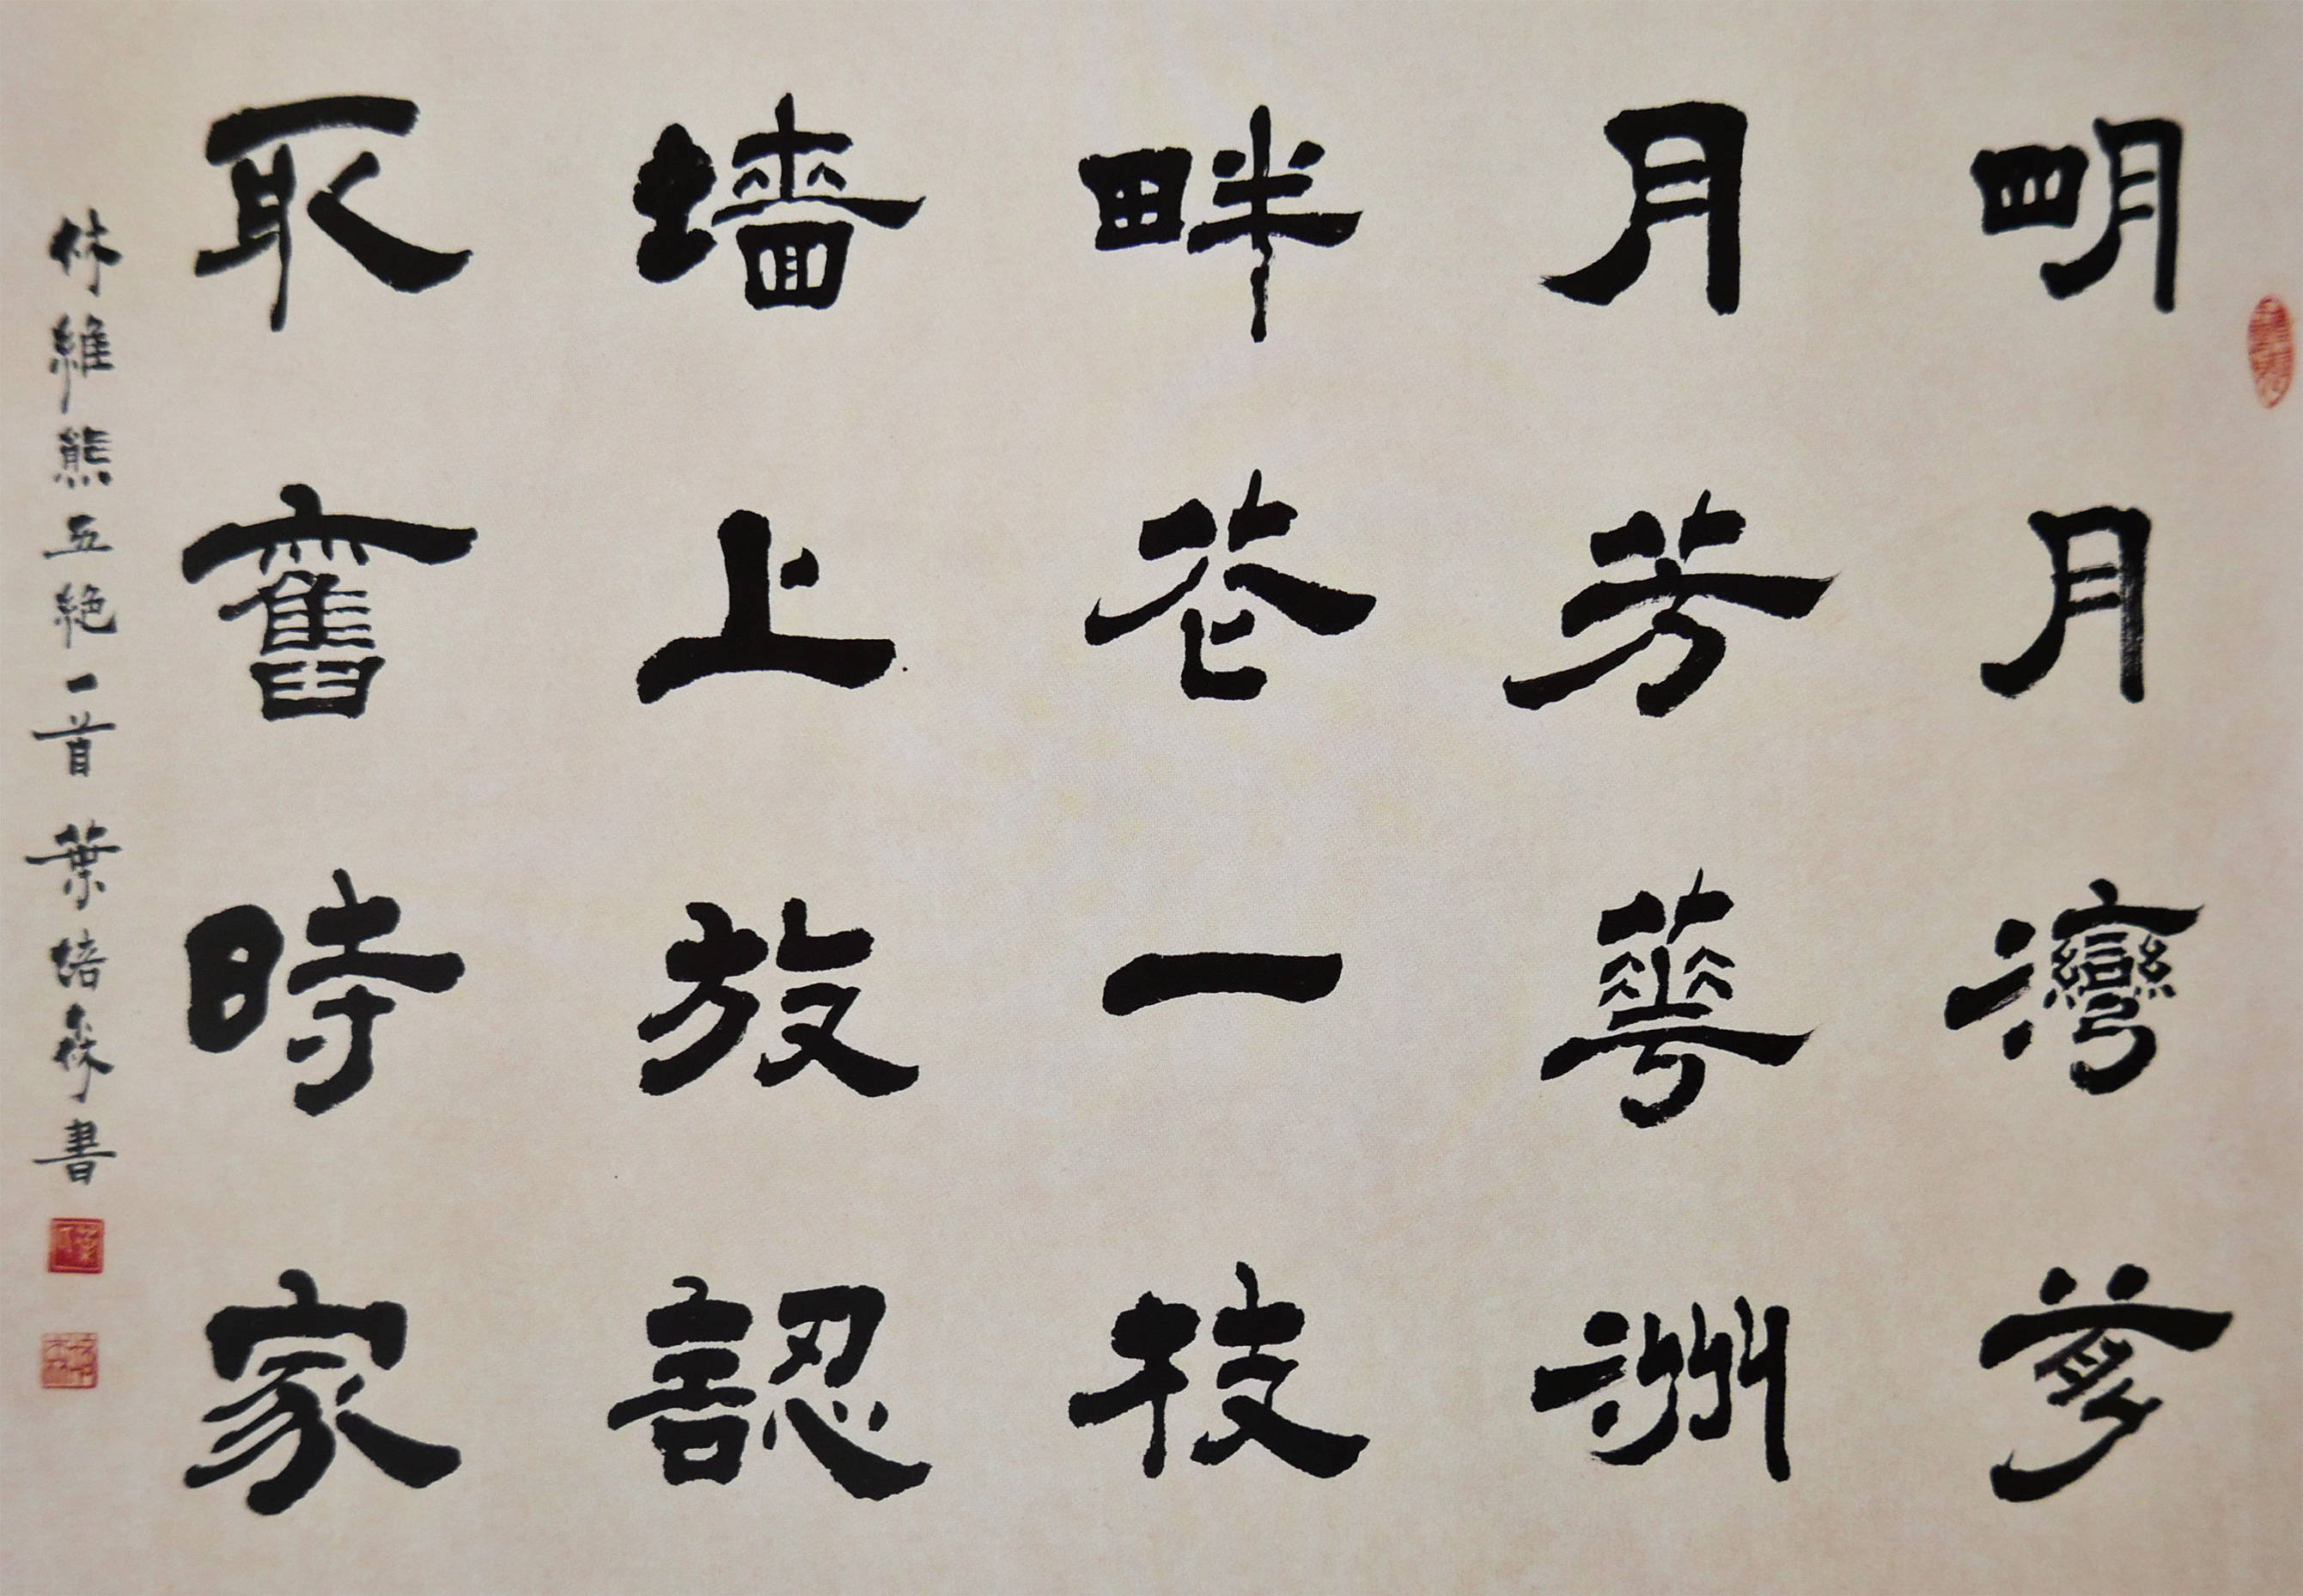 明月灣前
月芳華洲
畔花一枝
墻上放認
取舊時家
林維熊五絕一首 葉培森書